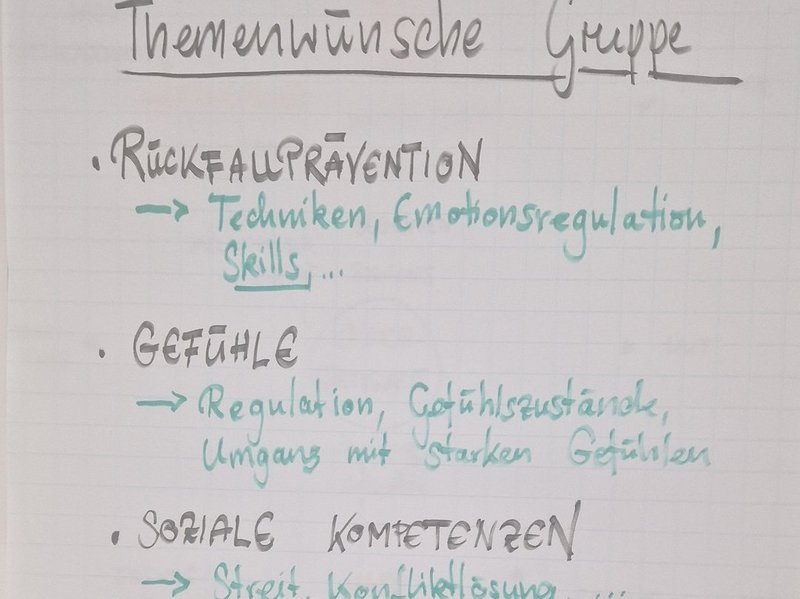 Themenwünsche Gruppe
• RÜCKFALLPRÄVENTION
→ Techniken, Emotionsregulation,
Skills, ...
• GEFÜHLE
→ Regulation, Gefühlszustände,
Umgang mit starken Gefühlen
• SOZIALE KOMPETENZEN
→ Streit, Konfliktlösung, ...